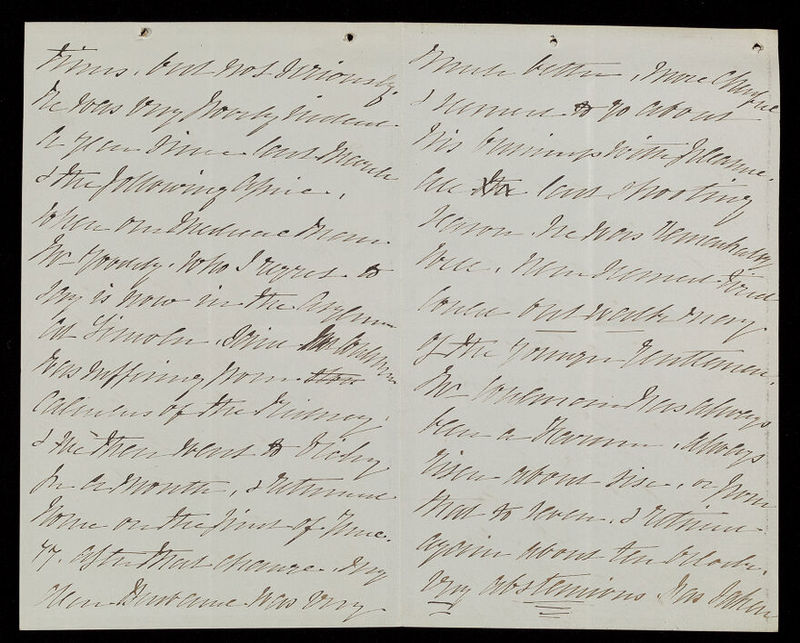 times, but not seriously.
He was very poorly indeed
a year since last March
& the following April,
when our Medical Man
Mr Goodely, who I regret to
say is now in the Asylum
at Lincoln, said
was suffering from
Calculus of the Kidney,
& we then went to Vichy
for a Month, & returned
home on the first of June.
77. After that change, my
dear Husband was very
much better, more cheerful
& seemed to go about
his business with pleasure.
all the last shooting
season he was remarkably
well, never seemed tired
could out walk many
of the younger Gentlemen.
Mr has always
been a Farmer, always
risen about six, or from
that to seven, & retiring
again about ten oclock.
Very abstemious has taken